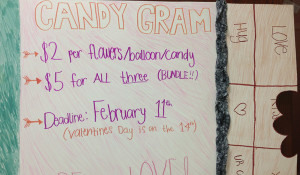 CANDY GRAM
$2 per flowers/balloon/candy
$5 for ALL three (BUNDLE!!)
Deadline: February 11th
(Valentines Day is on the 14th)
LOVE
HUG